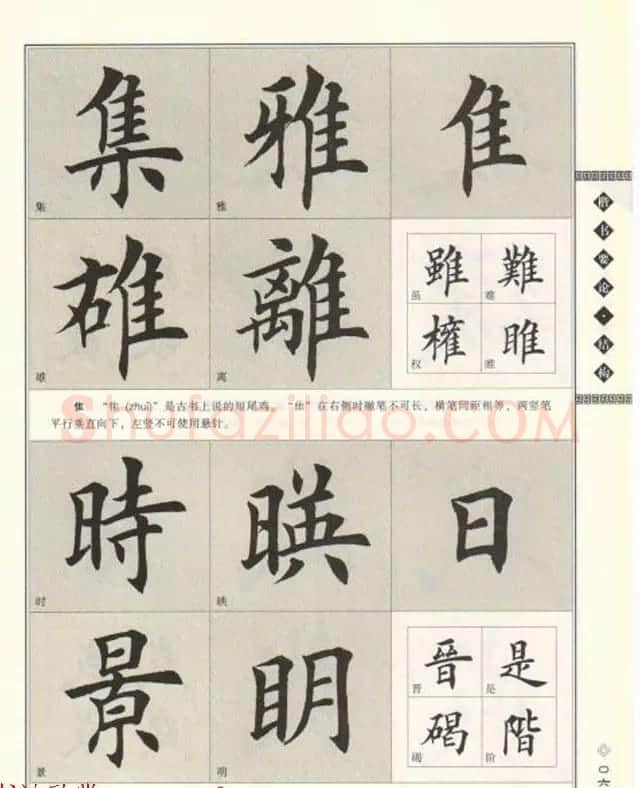 集 雅 隹
集 雅
雄 離 雖 難
雄 离 虽 难
權 睢
权 睢
隹 “隹（zhuī）”是古书上说的短尾鸡。“隹”在右侧时横笔不可长，横笔间距相等，两竖笔
平行垂直向下，左竖不可使用悬针。
shufaziliao.com
時 暎 日
时 映
景 明 晉 是
景 明 晋 是
碣 階
碣 阶
楷书要论·结构